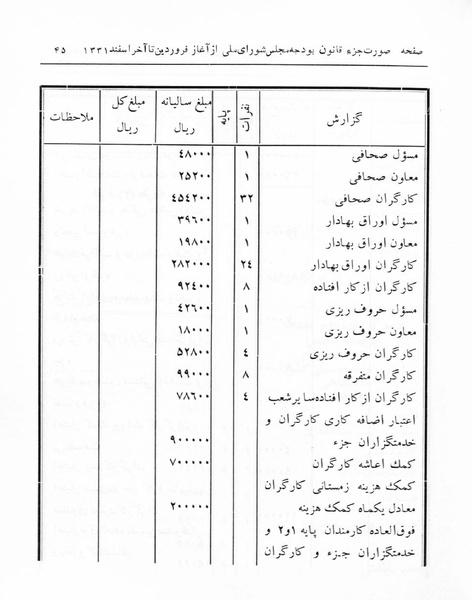 صفحه صورت جزء قانون بودجه مجلس شورای ملی از آغاز فروردین تا آخر اسفند ۱۳۳۱ ۴۵
گزارش نفرات پایه مبلغ سالیانه ریال مبلغ کل ریال ملاحظات
مسؤل صحافی ۱ ۴۸۰۰۰
معاون صحافی ۱ ۲۵۲۰۰
کارگران صحافی ۳۲ ۴۵۴۲۰۰
مسؤل اوراق بهادار ۱ ۳۹۶۰۰
معاون اوراق بهادار ۱ ۱۹۸۰۰
کارگران اوراق بهادار ۲۴ ۲۸۲۰۰۰
کارگران از کار افتاده ۸ ۹۲۴۰۰
مسؤل حروف ریزی ۱ ۴۲۶۰۰
معاون حروف ریزی ۱ ۱۸۰۰۰
کارگران حروف ریزی ۴ ۵۲۸۰۰
کارگران متفرقه ۸ ۹۹۰۰۰
کارگران از کار افتاده سایر شعب ۴ ۷۸۶۰۰
اعتبار اضافه کاری کارگران و
خدمتگزاران جزء ۹۰۰۰۰۰
کمک اعاشه کارگران ۷۰۰۰۰۰
کمک هزینه زمستانی کارگران
معادل یکماه کمک هزینه ۲۰۰۰۰۰
فوق‌العاده کارمندان پایه ۱و۲ و
خدمتگزاران جزء و کارگران